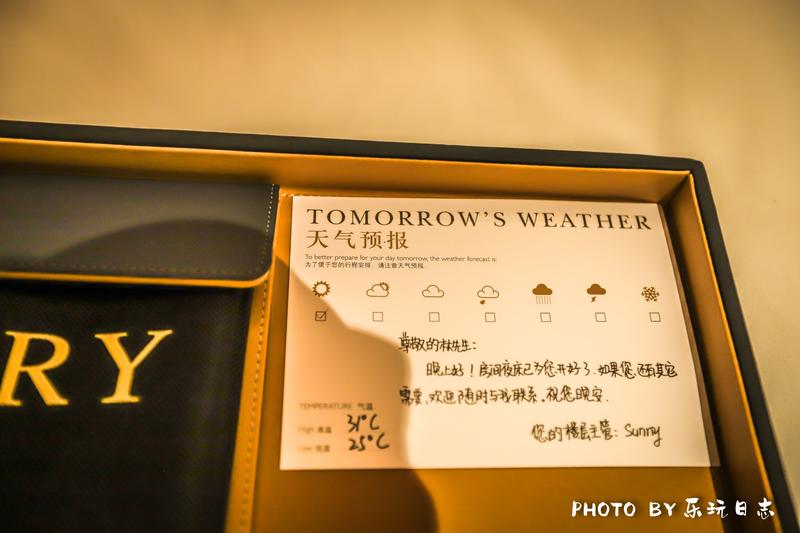 TOMORROW'S WEATHER
天气预报
To better prepare for your day tomorrow, the weather forecast is:
为了便于您的行程安排，请注意天气预报：
尊敬的林先生：
晚上好！房间夜床已为您开好了。如果您还有其它
需要，欢迎随时与我联系。祝您晚安。
TEMPERATURE 气温
High 高温 31°C
Low 低温 25°C
您的楼层主管：Sunny
RY
PHOTO BY 乐玩日志